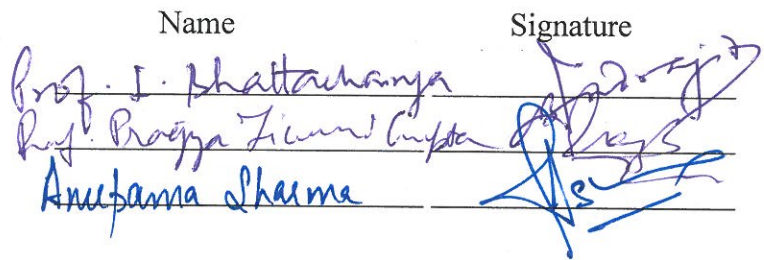 Name Signature
Prof. I. Bhattacharya Indrajit
Prof. Pragya Tiwari Gupta
Anupama Sharma AS